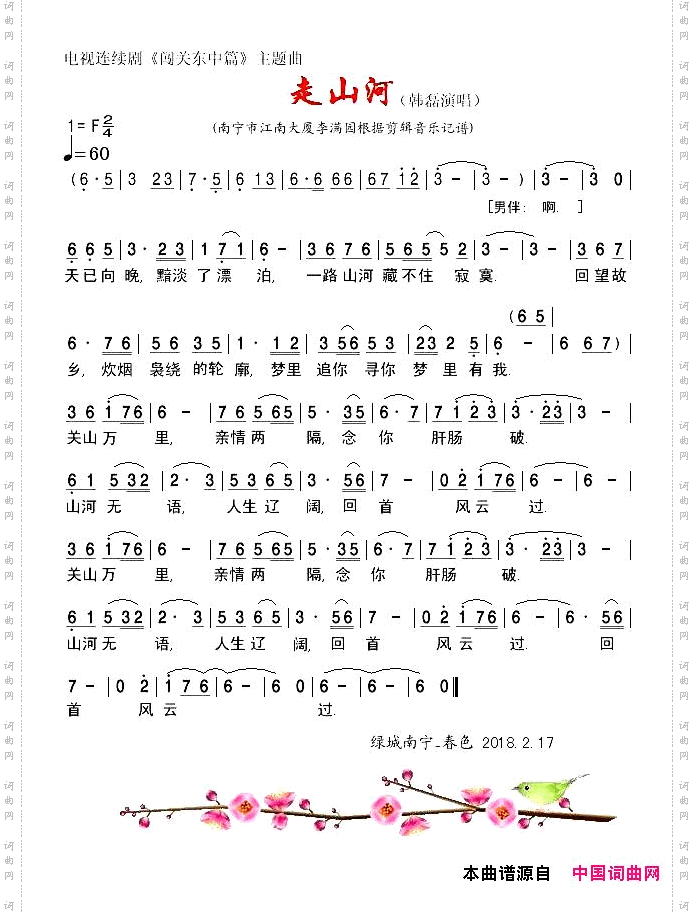 电视连续剧《闯关东中篇》主题曲
走山河（韩磊演唱）
(南宁市江南大厦李满园根据剪辑音乐记谱)
1=F 2/4
♩=60
(6·5|3 23|7·5|6 13|6·6 66|67 12|3 -|3 -)|3 -|3 0
[男伴: 啊. ]
6 6 5|3· 23|1 71|6 -|3676|5655|3 -|3 -|367
天已向晚, 黯淡了漂泊, 一路山河藏不住寂寞. 回望故
(6 5|
6· 76|56 35|1· 12|3 56 53|223 2 5|6 -|6 67)
乡, 炊烟袅绕的轮廓, 梦里追你寻你梦里有我.
36 176|6 -|76 5 65|5· 35|6· 7|71 23|3· 23|3 -|
关山万里, 亲情两隔, 念你肝肠破.
61 5532|2· 3|5365|3· 56|7 -|02 176|6 -|
山河无语, 人生辽阔, 回首风云过.
36 176|6 -|76 5 65|5· 35|6· 7|71 23|3· 23|3 -|
关山万里, 亲情两隔, 念你肝肠破.
61 532|2· 3|5365|3· 56|7 -|02 176|6 -|6· 56|
山河无语, 人生辽阔, 回首风云过. 回
7 -|0 2|176 6|6 -|6 -|6 0‖
首风云过.
绿城南宁_春色 2018.2.17
本曲谱源自 中国词曲网
词曲网